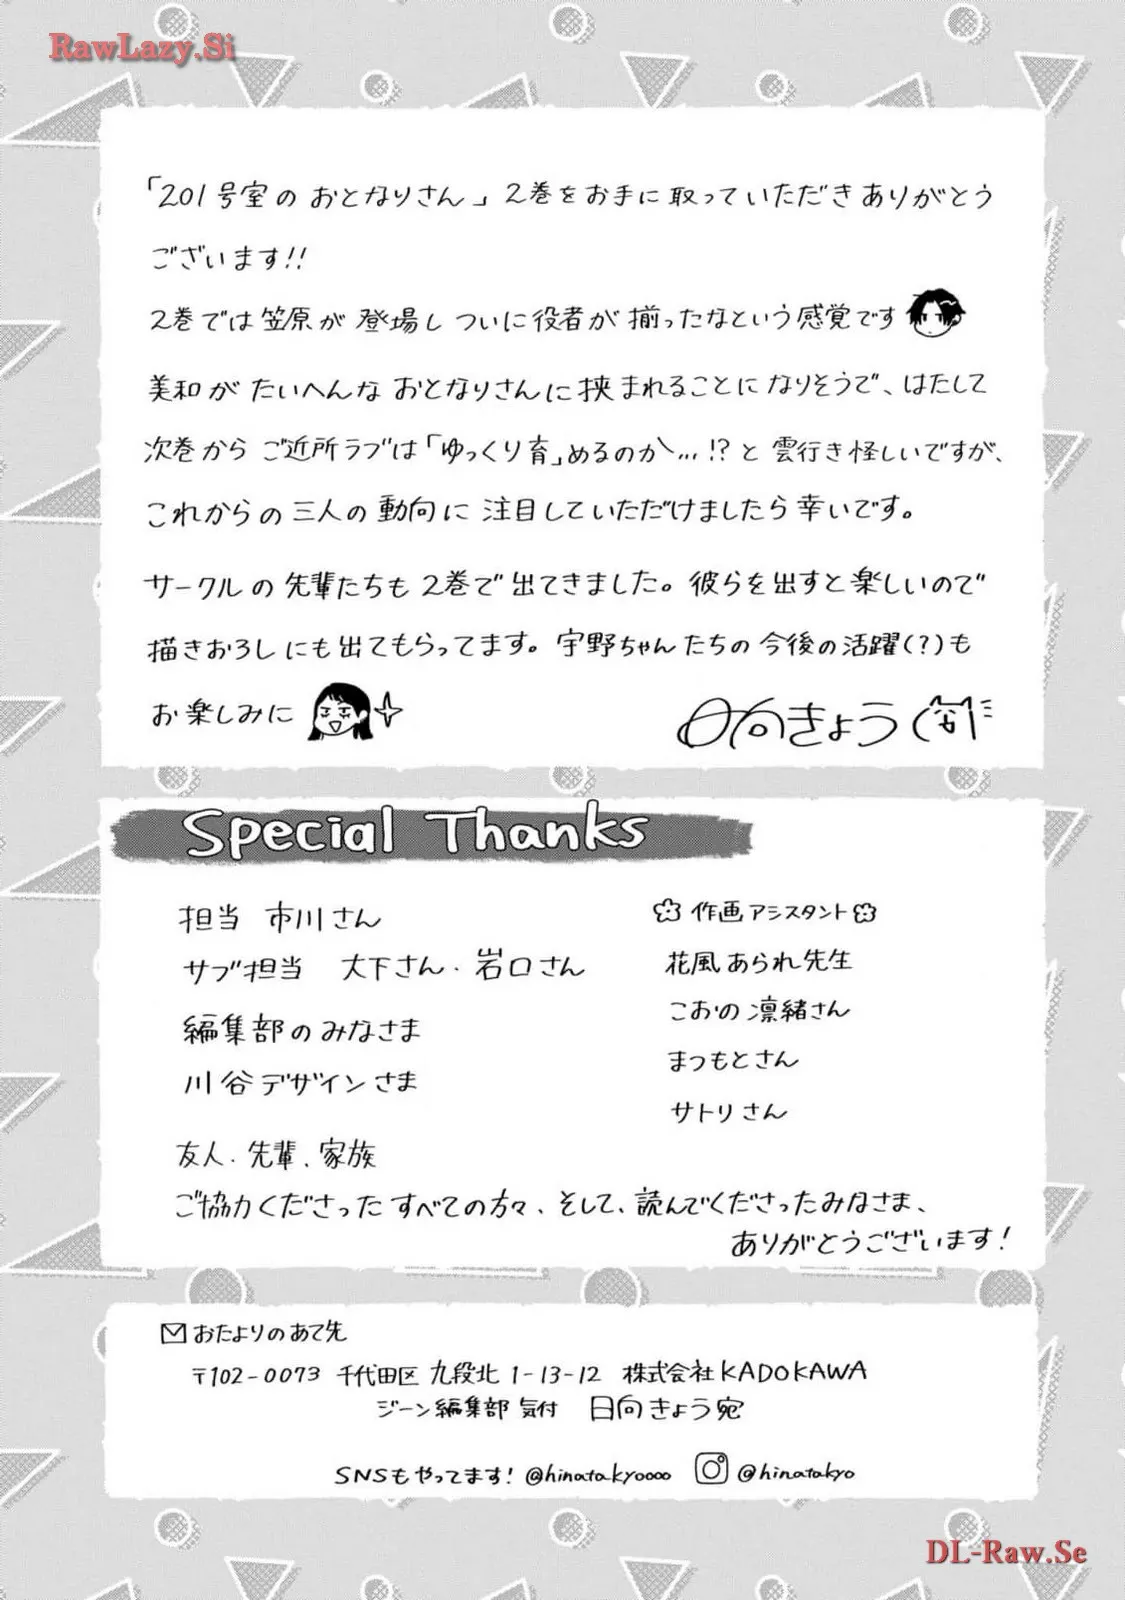 RawLazy.Si
「201号室のおとなりさん」2巻をお手に取っていただきありがとう
ございます!!
2巻では笠原が登場しついに役者が揃ったなという感覚です
美和がたいへんなおとなりさんに挟まれることになりそうで、はたして
次巻からご近所ラブは「ゆっくり育」めるのか…!?と雲行き怪しいですが、
これからの三人の動向に注目していただけましたら幸いです。
サークルの先輩たちも2巻で出てきました。彼らを出すと楽しいので
描きおろしにも出てもらってます。宇野ちゃんたちの今後の活躍(?)も
お楽しみに
日向きょう
Special Thanks
担当 市川さん
サブ担当 大下さん・岩口さん
編集部のみなさま
川谷デザインさま
作画アシスタント
花風あられ先生
こおの凛緒さん
まつもとさん
サトリさん
友人、先輩、家族
ご協力くださったすべての方々、そして、読んでくださったみなさま、
ありがとうございます!
おたよりのあて先
〒102-0073 千代田区九段北1-13-12 株式会社KADOKAWA
ジーン編集部気付 日向きょう宛
SNSもやってます! @hinatakyoooo @hinatakyo
DL-Raw.Se